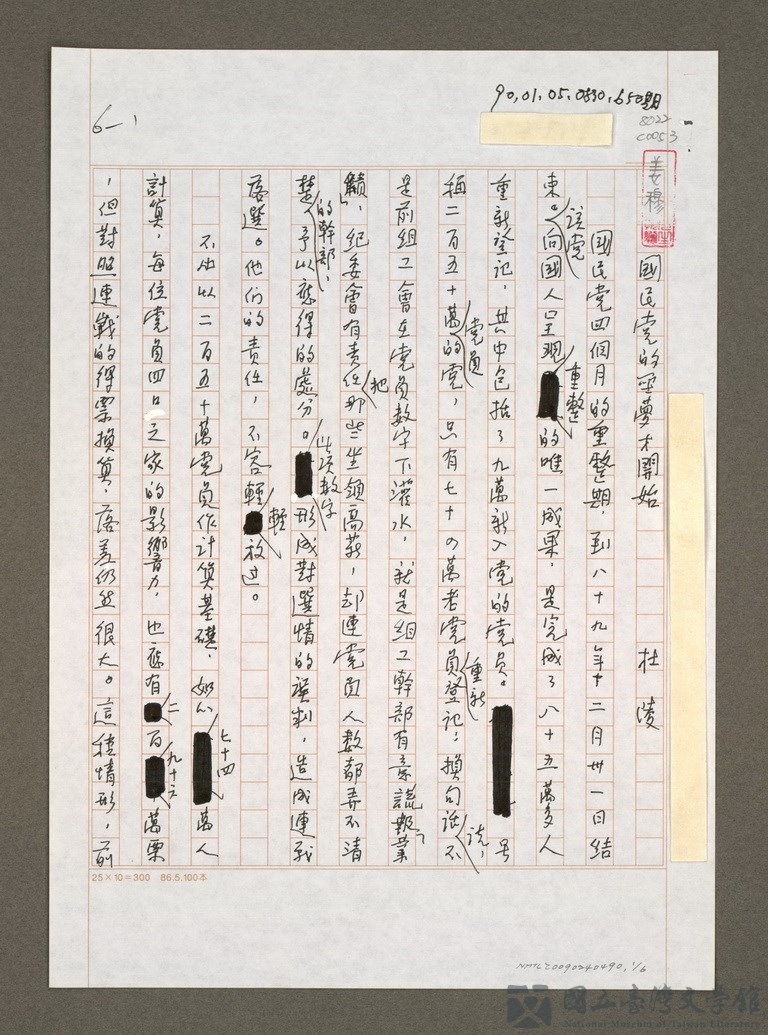 90.01.05.0830.650期
8022
C0053
6-1
姜穆
國民党的噩夢才開始　杜陵
國民党四個月的重整期，到八十九年十二月卅一日結
束。該党向國人呈現重整的唯一成果，是完成了八十五萬多人
重新登記，其中包括了九萬新入党的党員。号
稱二百五十萬党員的党，只有七十四萬老党員重新登記；換句話說，不
是前組工會在党員數字下灌水，就是組工幹部有意謊報業
績，紀委會有責任把那些坐領高薪，却連党員人數都弄不清
楚的幹部，予以應得的處分。此項數字形成對選情的誤判，造成連戰
落選。他们的責任，不容輕輕放过。
不由以二百五十萬党員作計算基礎，如以七十四萬人
計算，每位党員四口之家的影響力，也應有二百九十六萬票
，但對照連戰的得票換算，落差仍然很大。這種情形，前
25×10=300　86.5.100本
NMTL20090240490.1/6
國立臺灣文學館
National Museum of Taiwan Literature